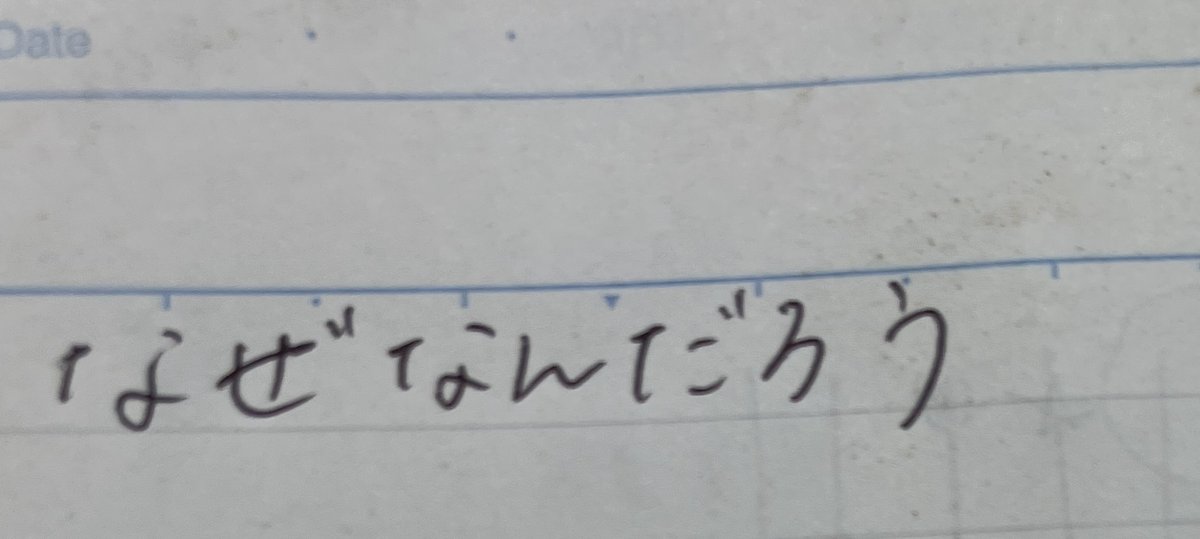 Date
なぜなんだろう